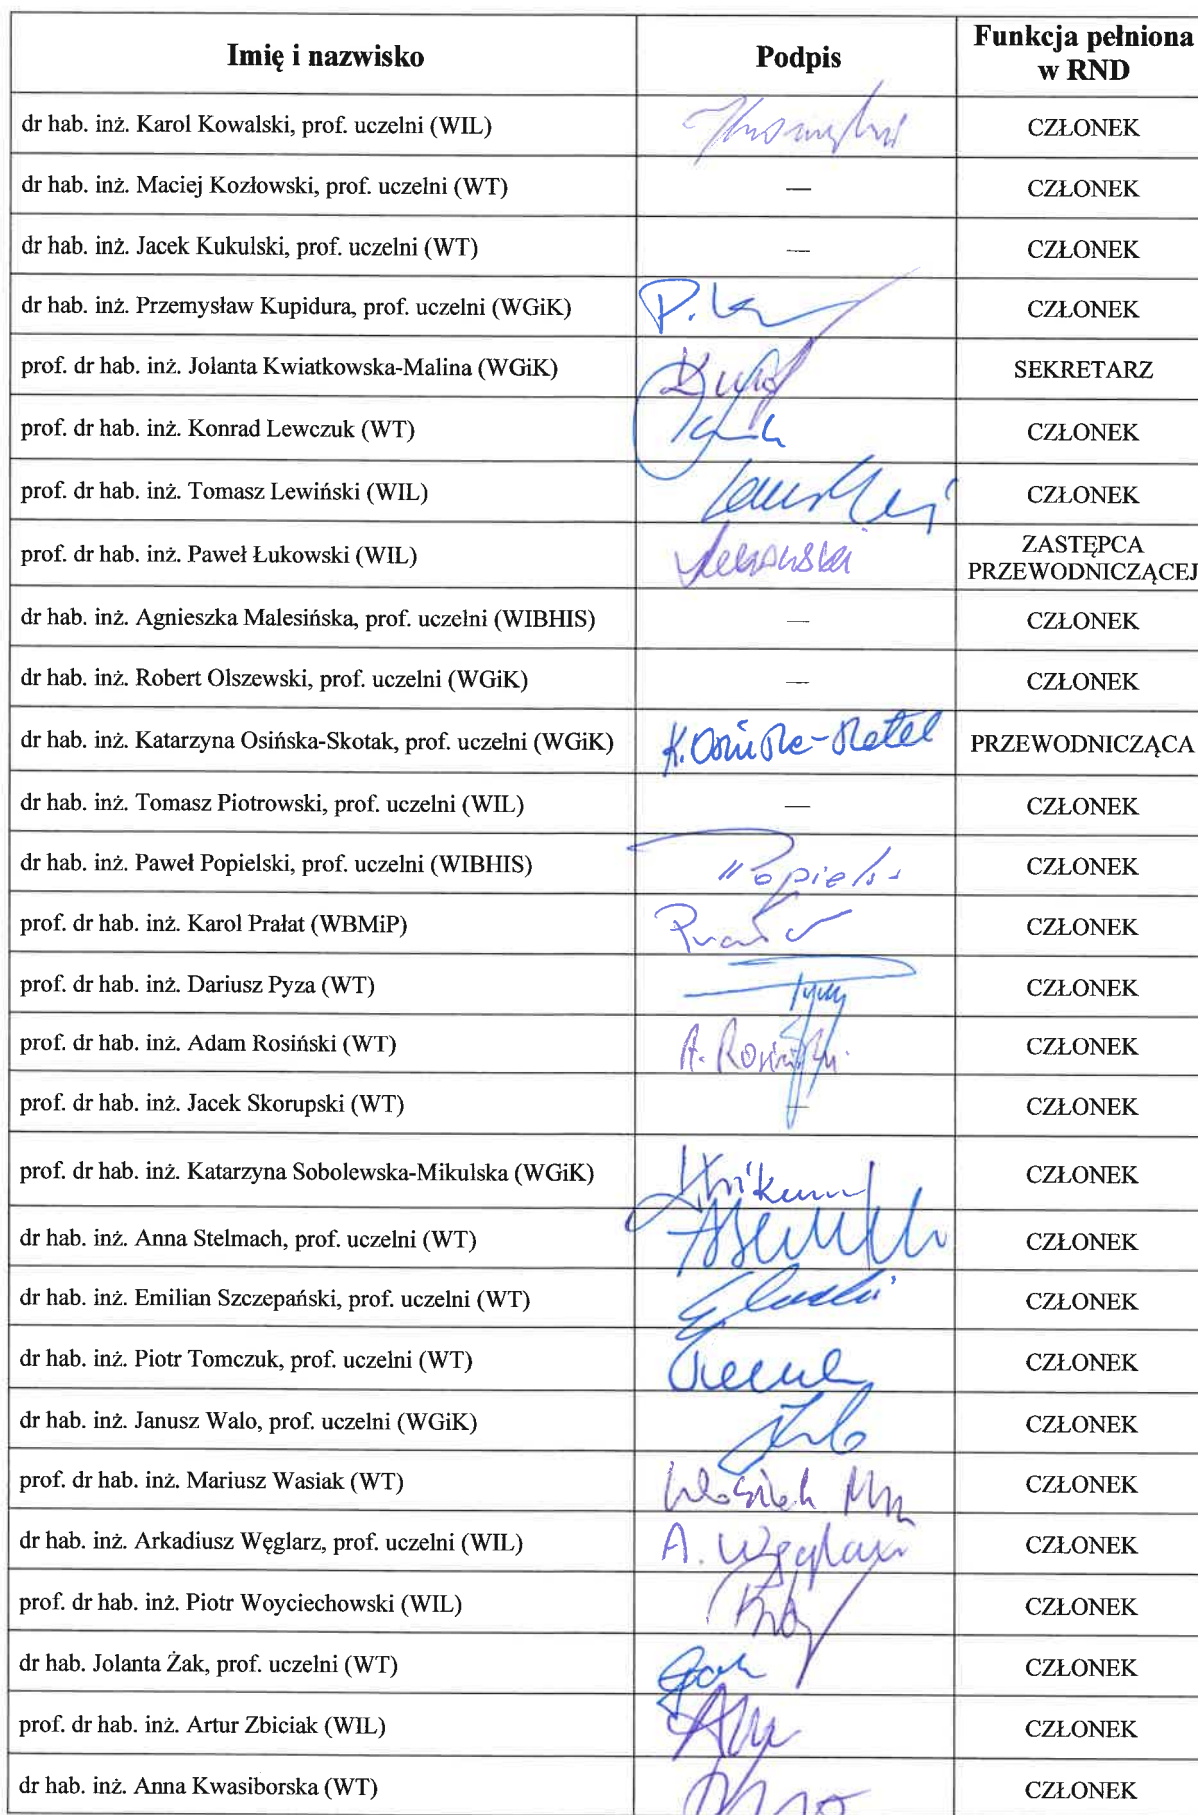 Imię i nazwisko Podpis Funkcja pełniona
w RND
dr hab. inż. Karol Kowalski, prof. uczelni (WIL) CZŁONEK
dr hab. inż. Maciej Kozłowski, prof. uczelni (WT) — CZŁONEK
dr hab. inż. Jacek Kukulski, prof. uczelni (WT) — CZŁONEK
dr hab. inż. Przemysław Kupidura, prof. uczelni (WGiK) CZŁONEK
prof. dr hab. inż. Jolanta Kwiatkowska-Malina (WGiK) SEKRETARZ
prof. dr hab. inż. Konrad Lewczuk (WT) CZŁONEK
prof. dr hab. inż. Tomasz Lewiński (WIL) CZŁONEK
prof. dr hab. inż. Paweł Łukowski (WIL) ZASTĘPCA
PRZEWODNICZĄCEJ
dr hab. inż. Agnieszka Malesińska, prof. uczelni (WIBHIS) — CZŁONEK
dr hab. inż. Robert Olszewski, prof. uczelni (WGiK) — CZŁONEK
dr hab. inż. Katarzyna Osińska-Skotak, prof. uczelni (WGiK) PRZEWODNICZĄCA
dr hab. inż. Tomasz Piotrowski, prof. uczelni (WIL) — CZŁONEK
dr hab. inż. Paweł Popielski, prof. uczelni (WIBHIS) CZŁONEK
prof. dr hab. inż. Karol Prałat (WBMiP) CZŁONEK
prof. dr hab. inż. Dariusz Pyza (WT) CZŁONEK
prof. dr hab. inż. Adam Rosiński (WT) CZŁONEK
prof. dr hab. inż. Jacek Skorupski (WT) — CZŁONEK
prof. dr hab. inż. Katarzyna Sobolewska-Mikulska (WGiK) CZŁONEK
dr hab. inż. Anna Stelmach, prof. uczelni (WT) CZŁONEK
dr hab. inż. Emilian Szczepański, prof. uczelni (WT) CZŁONEK
dr hab. inż. Piotr Tomczuk, prof. uczelni (WT) CZŁONEK
dr hab. inż. Janusz Walo, prof. uczelni (WGiK) CZŁONEK
prof. dr hab. inż. Mariusz Wasiak (WT) CZŁONEK
dr hab. inż. Arkadiusz Węglarz, prof. uczelni (WIL) A. Węglarz CZŁONEK
prof. dr hab. inż. Piotr Woyciechowski (WIL) CZŁONEK
dr hab. Jolanta Żak, prof. uczelni (WT) CZŁONEK
prof. dr hab. inż. Artur Zbiciak (WIL) CZŁONEK
dr hab. inż. Anna Kwasiborska (WT) CZŁONEK